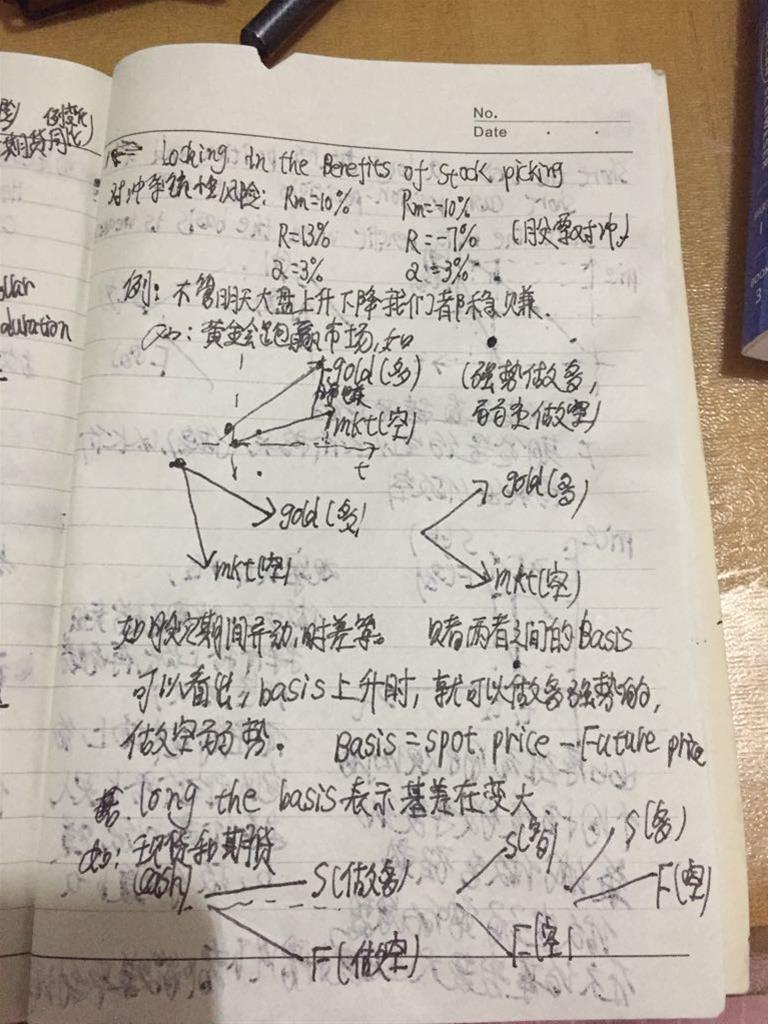 No.
Date
Locking in the Benefits of Stock picking
对冲系统性风险: Rm=10% Rm=-10%
R=13% R=-7% (股票对冲)
α=3% α=3%
例: 不管明天大盘上升下降我们都稳赚.
如: 黄金会跑赢市场, 如
gold(多) (强势做多,
mkt(空) 弱势做空)
t
gold(多) gold(多)
mkt(空) mkt(空)
期间异动, 时差等。 赌两者之间的Basis
可以看出, basis上升时, 就可以做多强势的,
做空弱势。 Basis = spot price - Future price
long the basis 表示基差在变大
现货和期货 S(多) S(多)
(cash) S(做多) F(空)
F(做空) F(空)
期货
duration
BOOK
3
1